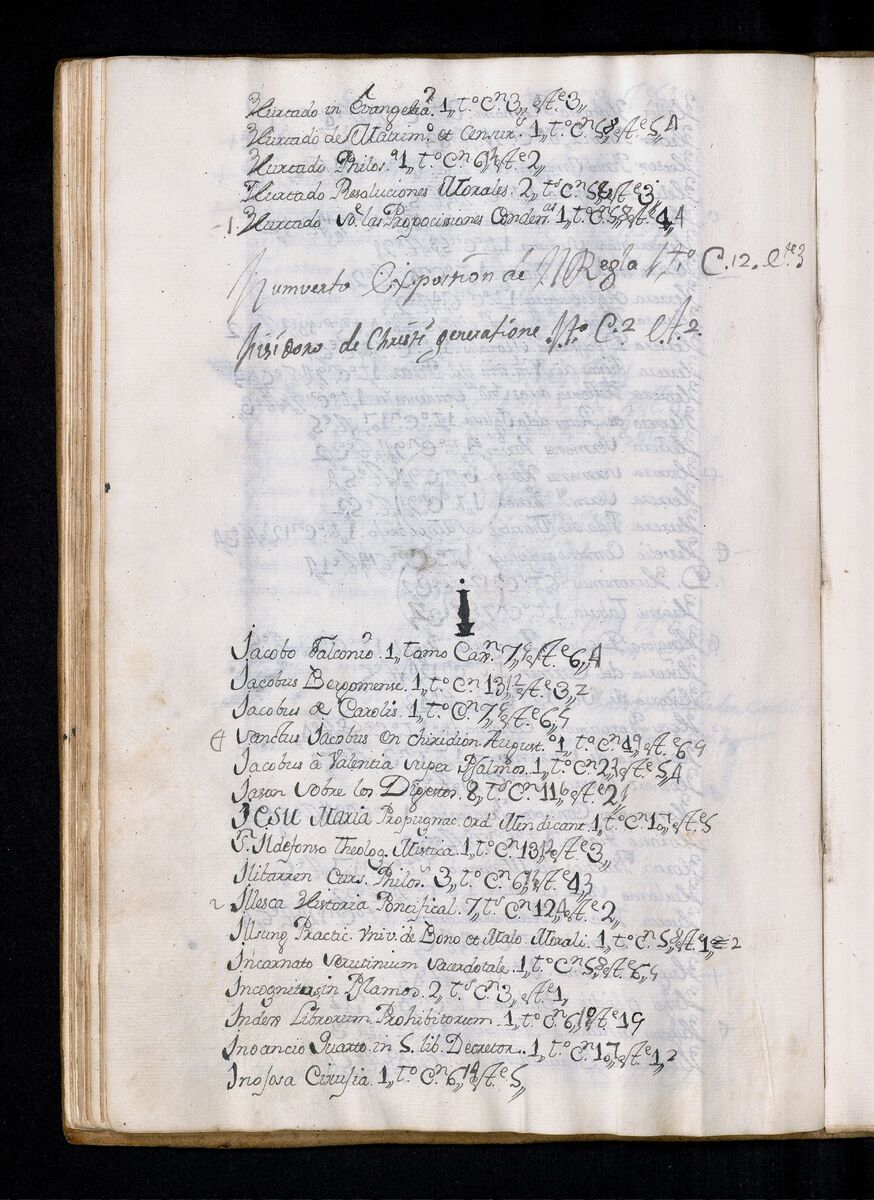 Hurtado in Evangelia. 1,, t.º C.n 3,, est.e 3,,
Hurtado de Matrim.º et Censur.s 1,, t.º C.n 5,, est.e 5,, 4
Hurtado Philos.a 1,, t.º C.n 6,, est.e 2,,
Hurtado Resoluciones Morales. 2,, t.s C.n 5,, est.e 3
Hurtado so.e las Propocissiones Conden.as 1,, t.º C.n 5,, est.e 4
Humverto Exposition de N Regla 1 t.º C. 12. e.te 3
Hisidoro de Christi generatione. 1 t.º C. 2 est. 2.
i
Jacobo Falconio. 1,, tomo Caxn. 7,, est.e 6,, 4
Jacobus Bergomense. 1,, t.º C.n 13, est.e 3,, 2
Jacobus de Carolis. 1,, t.º C.n 7,, est.e 6,, 5
Sanctus Jacobus en chiridion August.º 1,, t.º C.n est.e 6 9
Jacobus à Valentia super Psalmos. 1,, t.º C.n 2, est.e 5,, 4
Jason sobre los Digestos. 8,, t.s C.n 11, est.e 2
JESU MARIA Propugnac. ord. Mendicant. 1,, t.º C.n est.e 5
Fr. Ildefonso Theolog. Mistica. 1,, t.º C.n 13, est.e 3,,
Ilibarren Curs. Philos. 3,, t.º C.n 6, est.e 4, 3
2 Illesca Historia Pontifical. 7,, t.s C.n 12, est.e 2,,
Illsung Practic. Univ. de Bono et Malo Morali. 1,, t.º C.n 5,, est.e 1, 2
Incarnato Scrutinium Sacerdotale. 1,, t.º C.n 5, est.e 6, 5
Incognitus in Psalmos. 2,, t.s C.n 3,, est.e 1,,
Index Librorum Prohibitorum. 1,, t.º C.n 6, est.e 19
Inoancio Quarto in 5. lib. Decretor. 1,, t.º C.n est.e 1, 2
Inojosa Cirujia. 1,, t.º C.n 6,, est.e 5,,